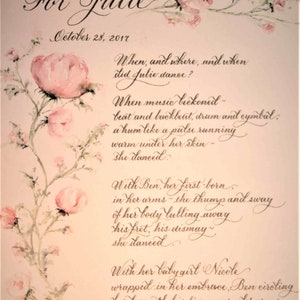 For Julie
October 28, 2017
When, and where, and when
did Julie dance?
When music beckoned –
beat and backbeat, drum and cymbal,
a hum like a pulse running
warm under her skin –
she danced.
With Ben, her first-born
in her arms – the thump and sway
of her body lulling away
his fret, his dismay –
she danced.
With her baby girl Nicole
wrapped in her embrace, Ben circling